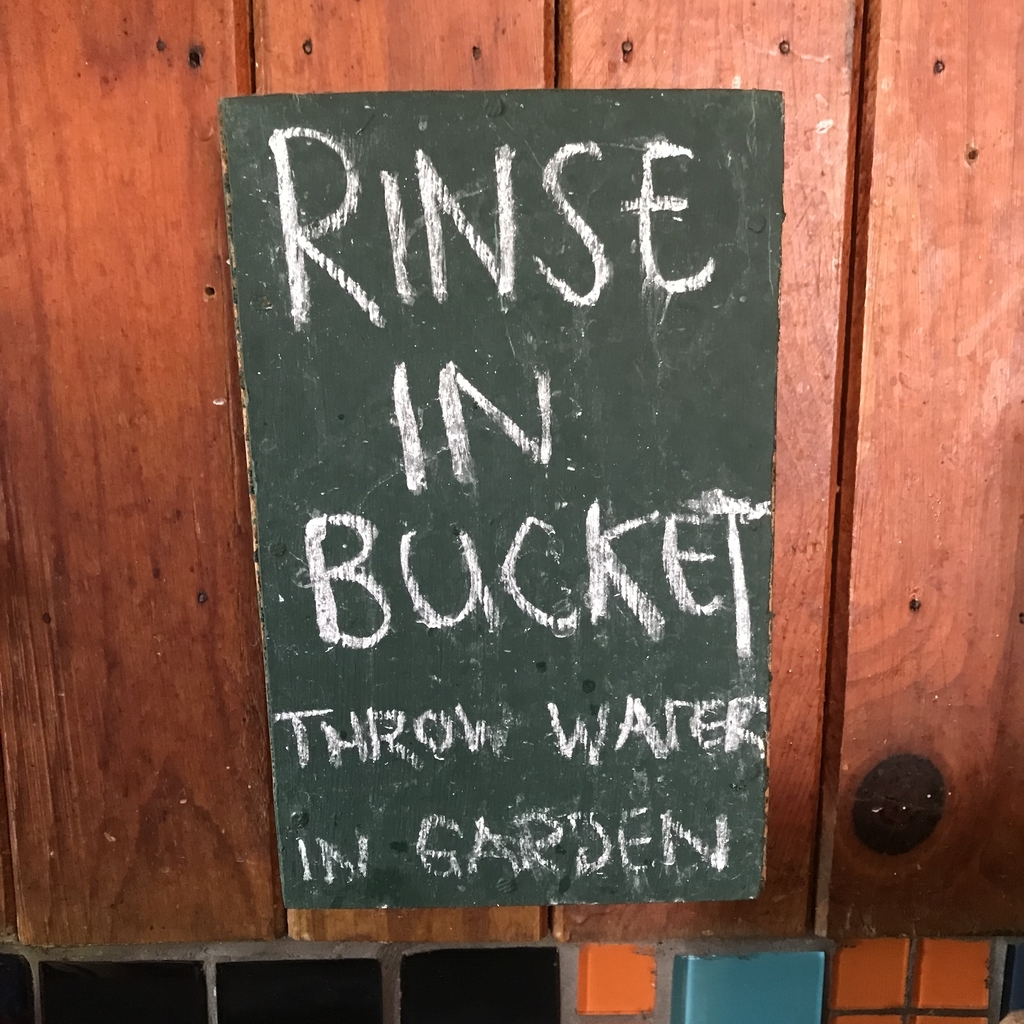 RINSE
IN
BUCKET
THROW WATER
IN GARDEN